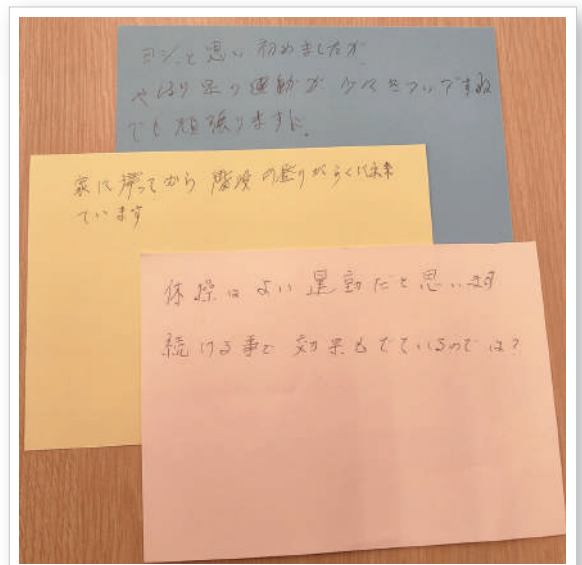 ヨシ、と思い初めましたが
やはり足の運動が少々きついですね
でも頑張りますに.
家に帰ってから階段の登りがらくに出来
ています
体操はよい運動だと思います
続ける事で効果もでているのでは?